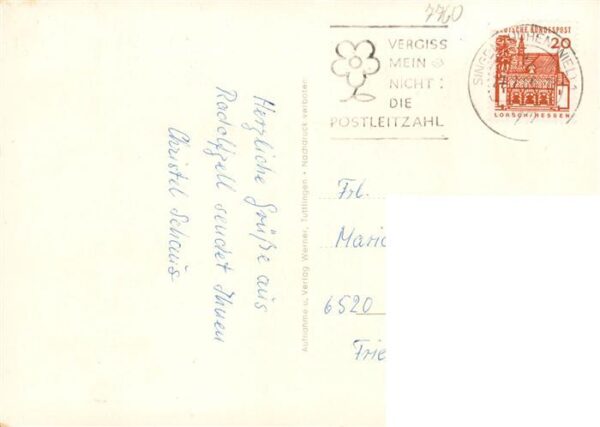 7760
VERGISS
MEIN
NICHT:
DIE
POSTLEITZAHL
DEUTSCHE BUNDESPOST
20
LORSCH/HESSEN
Herzliche Grüße aus
Radolfzell sendet Ihnen
Christel Schaus
Aufnahme u. Verlag Werner, Tuttlingen • Nachdruck verboten
Frl.
Maric
6520
Frie